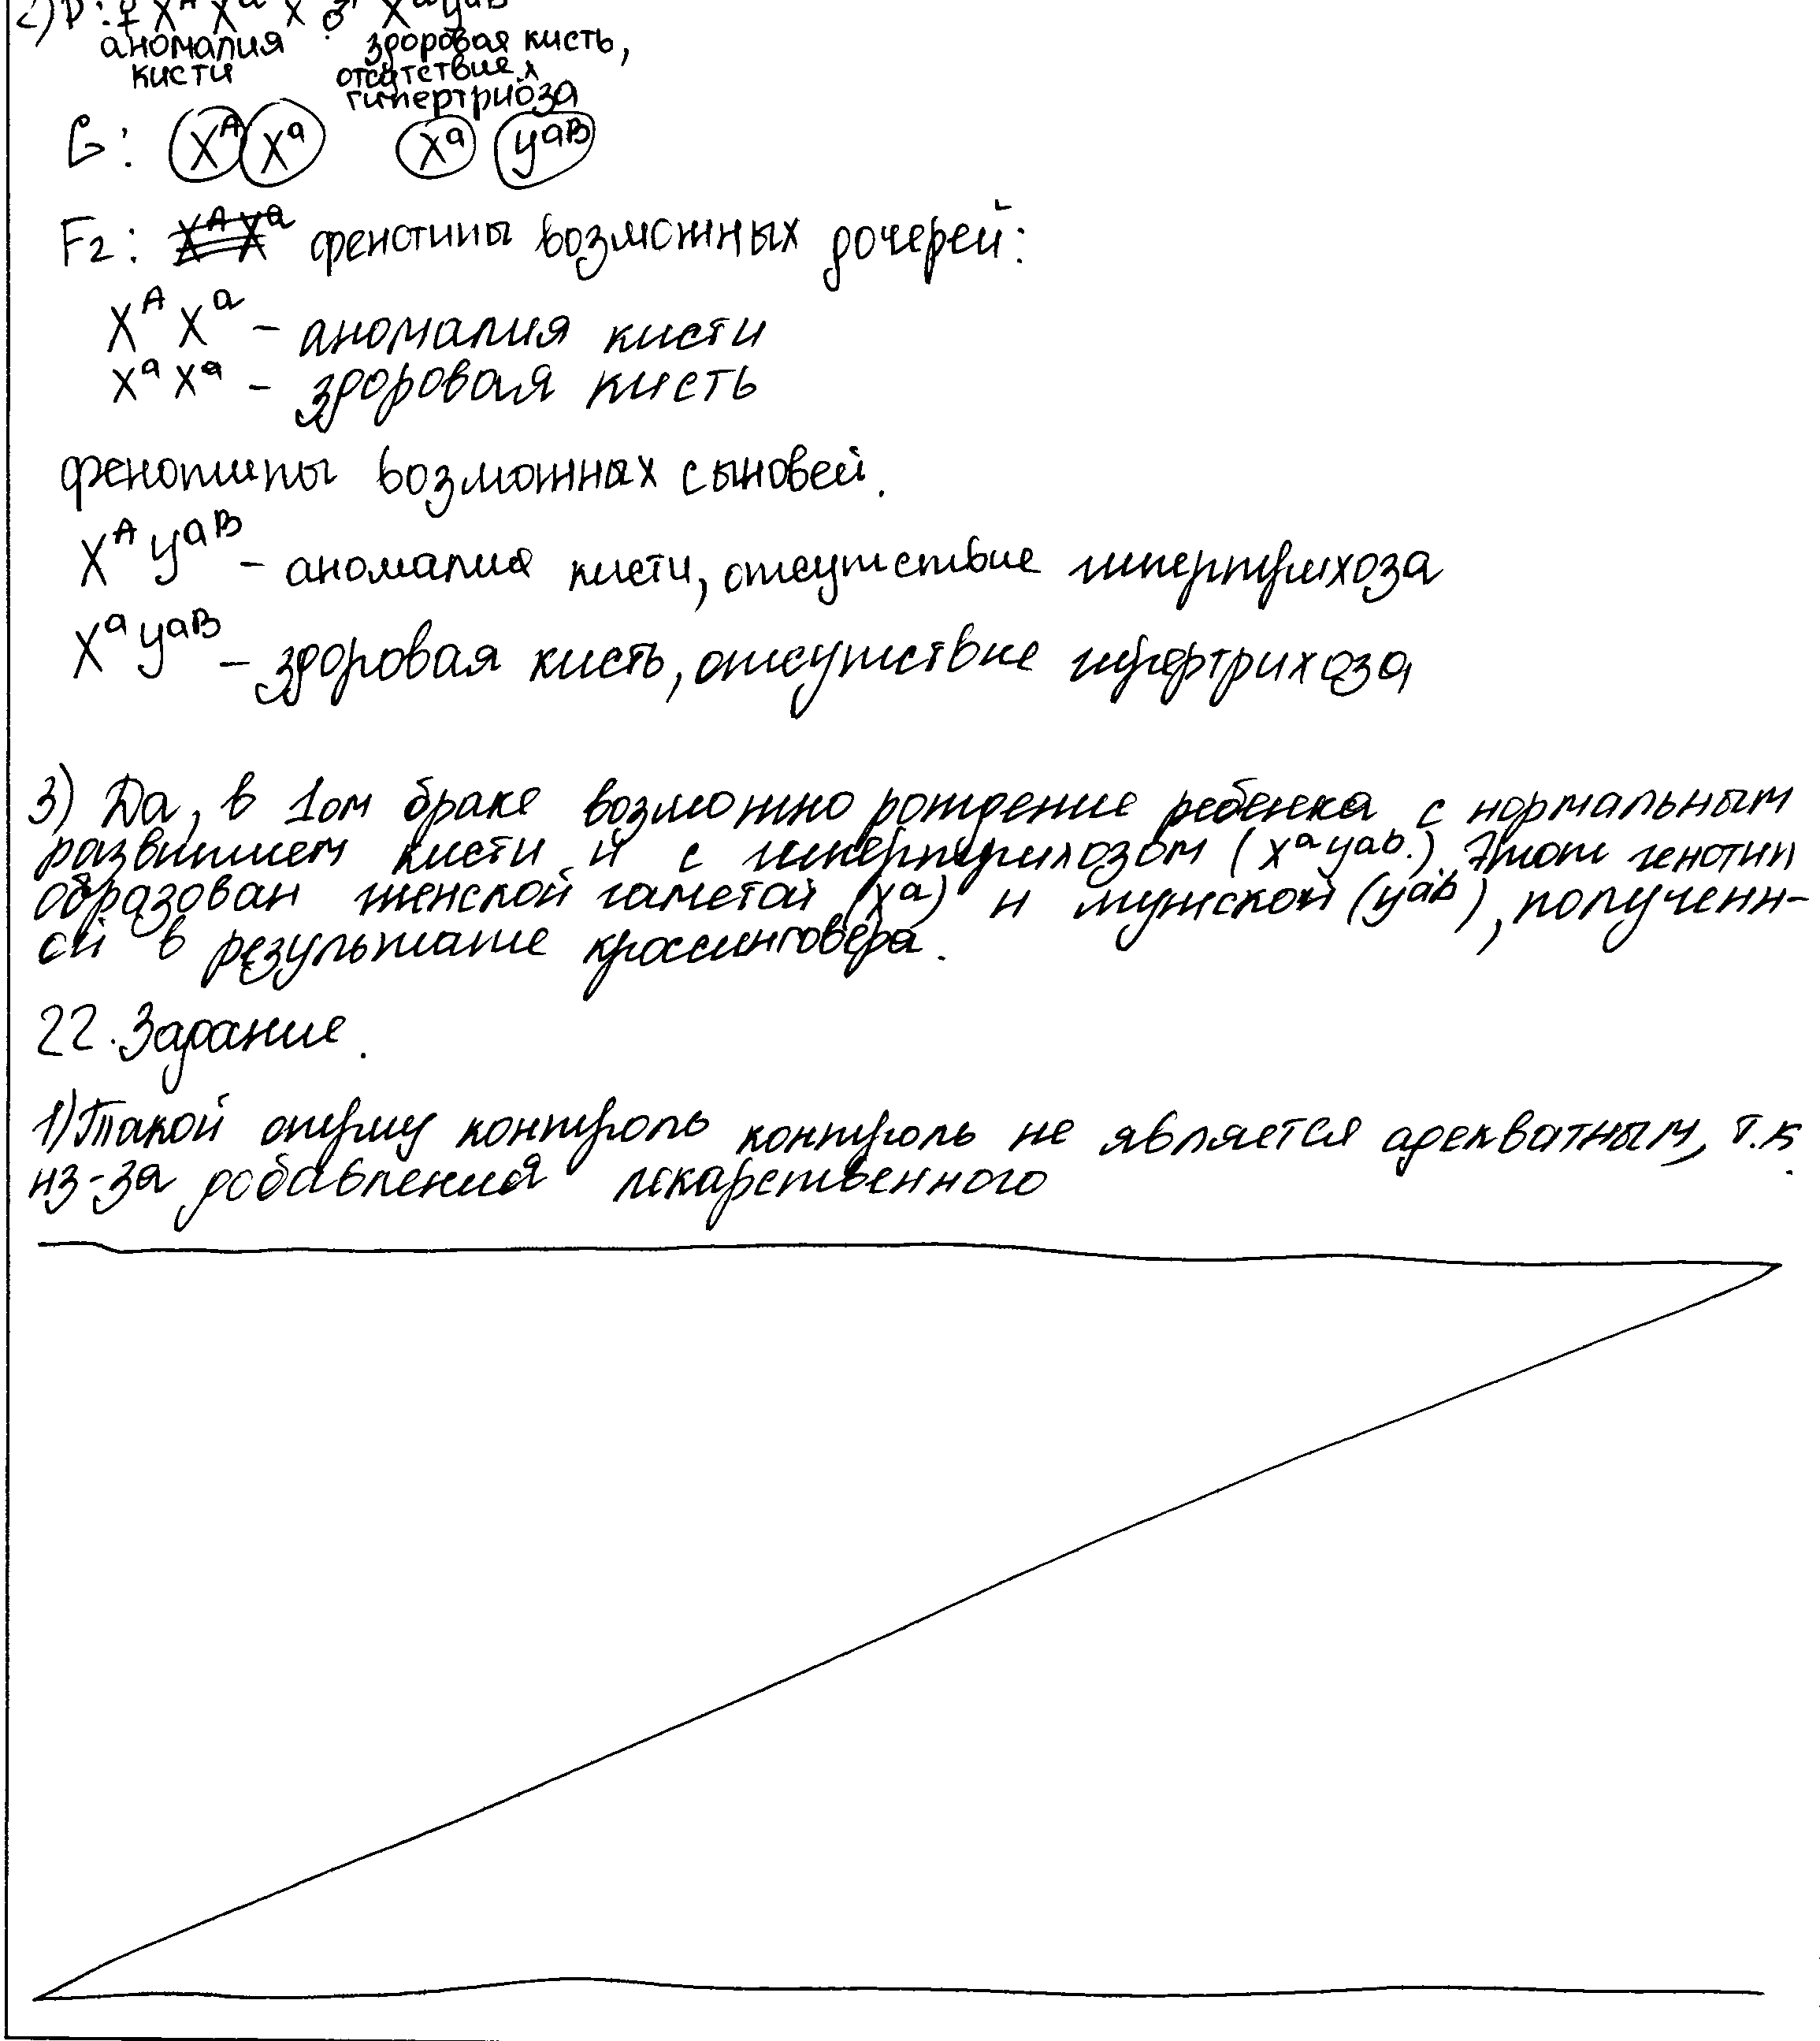 2) P: ♀ X^A X^a x ♂ X^a y^aB
аномалия здоровая кисть,
кисти отсутствие
гипертриоза
G: X^A X^a X^a y^aB
F2: X^A X^a фенотипы возможных дочерей:
X^A X^a – аномалия кисти
X^a X^a – здоровая кисть
фенотипы возможных сыновей.
X^A y^aB – аномалия кисти, отсутствие гипертрихоза
X^a y^aB – здоровая кисть, отсутствие гипертрихоза
3) Да, в 1ом браке возможно рождение ребенка с нормальным
развитием кисти и с гипертрихозом (X^a y^ab.). Этот генотип
образован женской гаметой (X^a) и мужской (y^ab), полученн-
ой в результате кроссинговера.
22. Задание.
1) Такой отриц контроль контроль не является адекватным, т.к.
из-за добавления лекарственного